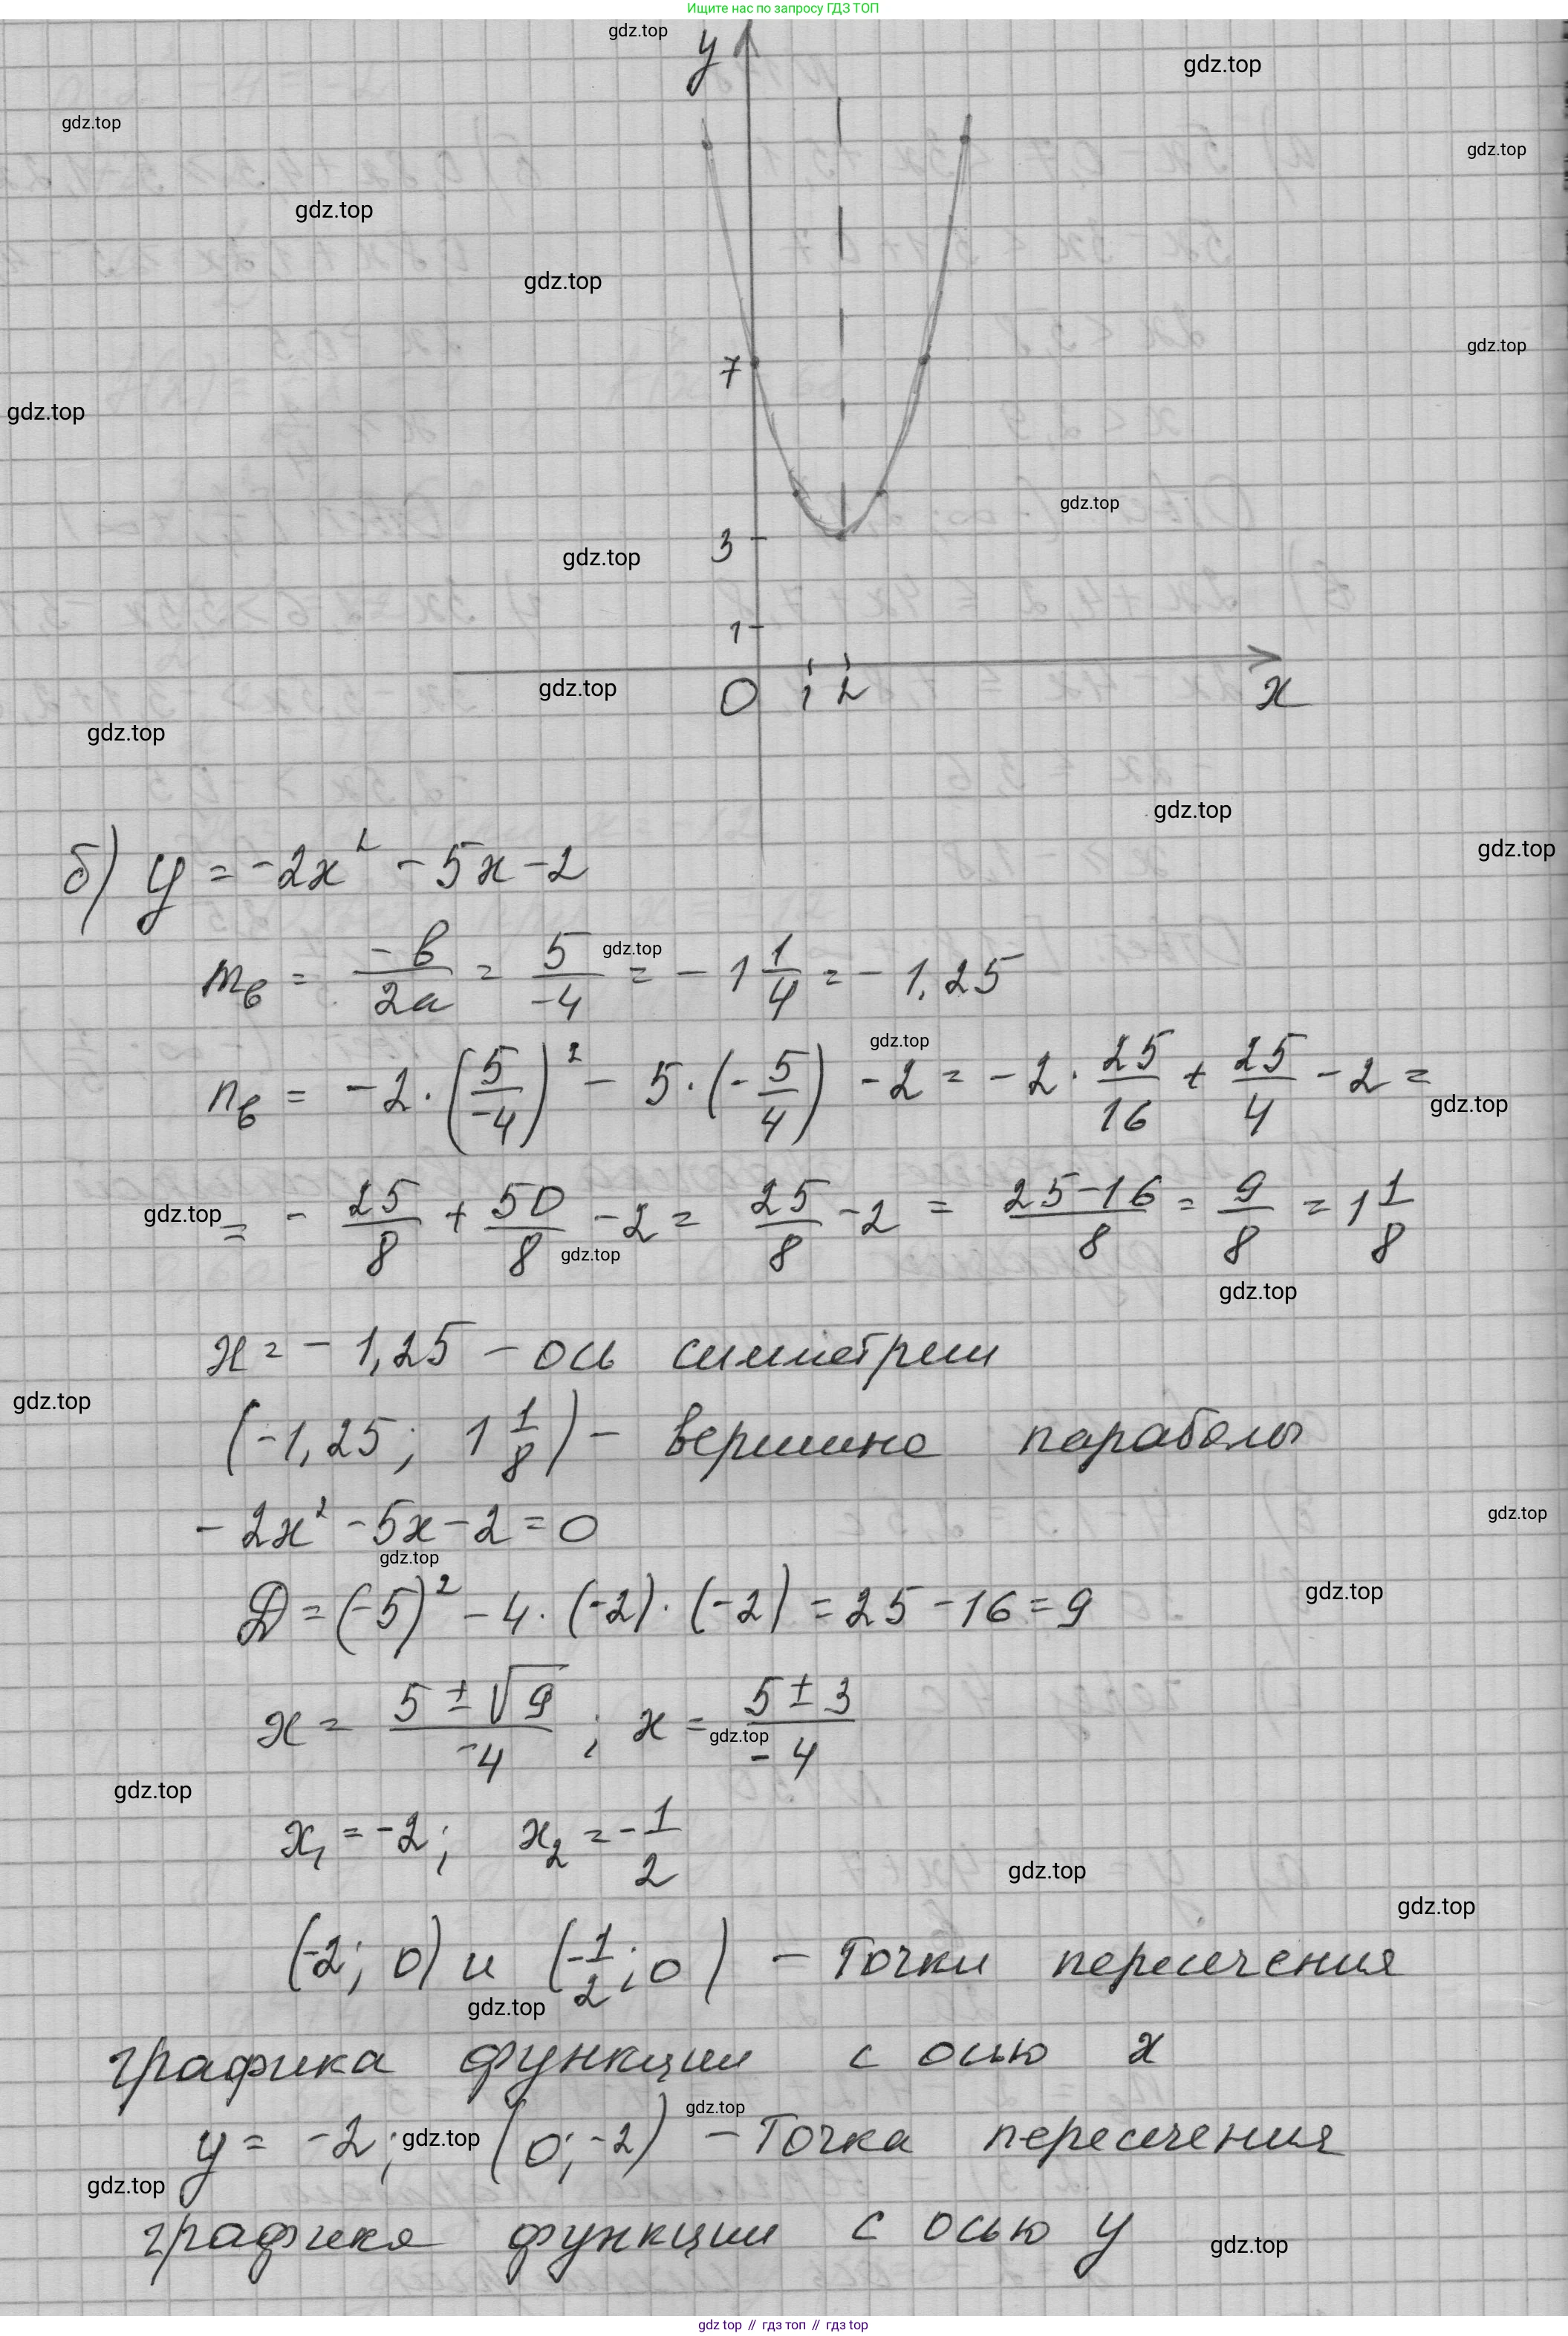 Ищите нас по запросу ГДЗ ТОП
gdz.top
y
gdz.top
gdz.top
gdz.top
gdz.top
gdz.top
gdz.top
7
gdz.top
gdz.top
3
gdz.top
1
gdz.top
0 1 2 x
gdz.top
gdz.top
gdz.top
б) y = -2x² - 5x - 2
mв = -в/2a = 5/-4 = -1 1/4 = -1,25
gdz.top
gdz.top
nв = -2·(5/-4)² - 5·(-5/4) - 2 = -2·25/16 + 25/4 - 2 =
gdz.top
gdz.top
= -25/8 + 50/8 - 2 = 25/8 - 2 = (25-16)/8 = 9/8 = 1 1/8
gdz.top
gdz.top
x = -1,25 - ось симметрии
gdz.top
(-1,25; 1 1/8) - вершина параболы
gdz.top
-2x² - 5x - 2 = 0
gdz.top
D = (-5)² - 4·(-2)·(-2) = 25 - 16 = 9
gdz.top
x = (5 ± √9)/-4; x = (5 ± 3)/-4
gdz.top
gdz.top
x₁ = -2; x₂ = -1/2
gdz.top
gdz.top
(-2; 0) и (-1/2; 0) - Точки пересечения
gdz.top
графика функции с осью x
gdz.top
y = -2; (0; -2) - Точка пересечения
gdz.top
gdz.top
графика функции с осью y
gdz.top
gdz top // гдз топ // гдз top